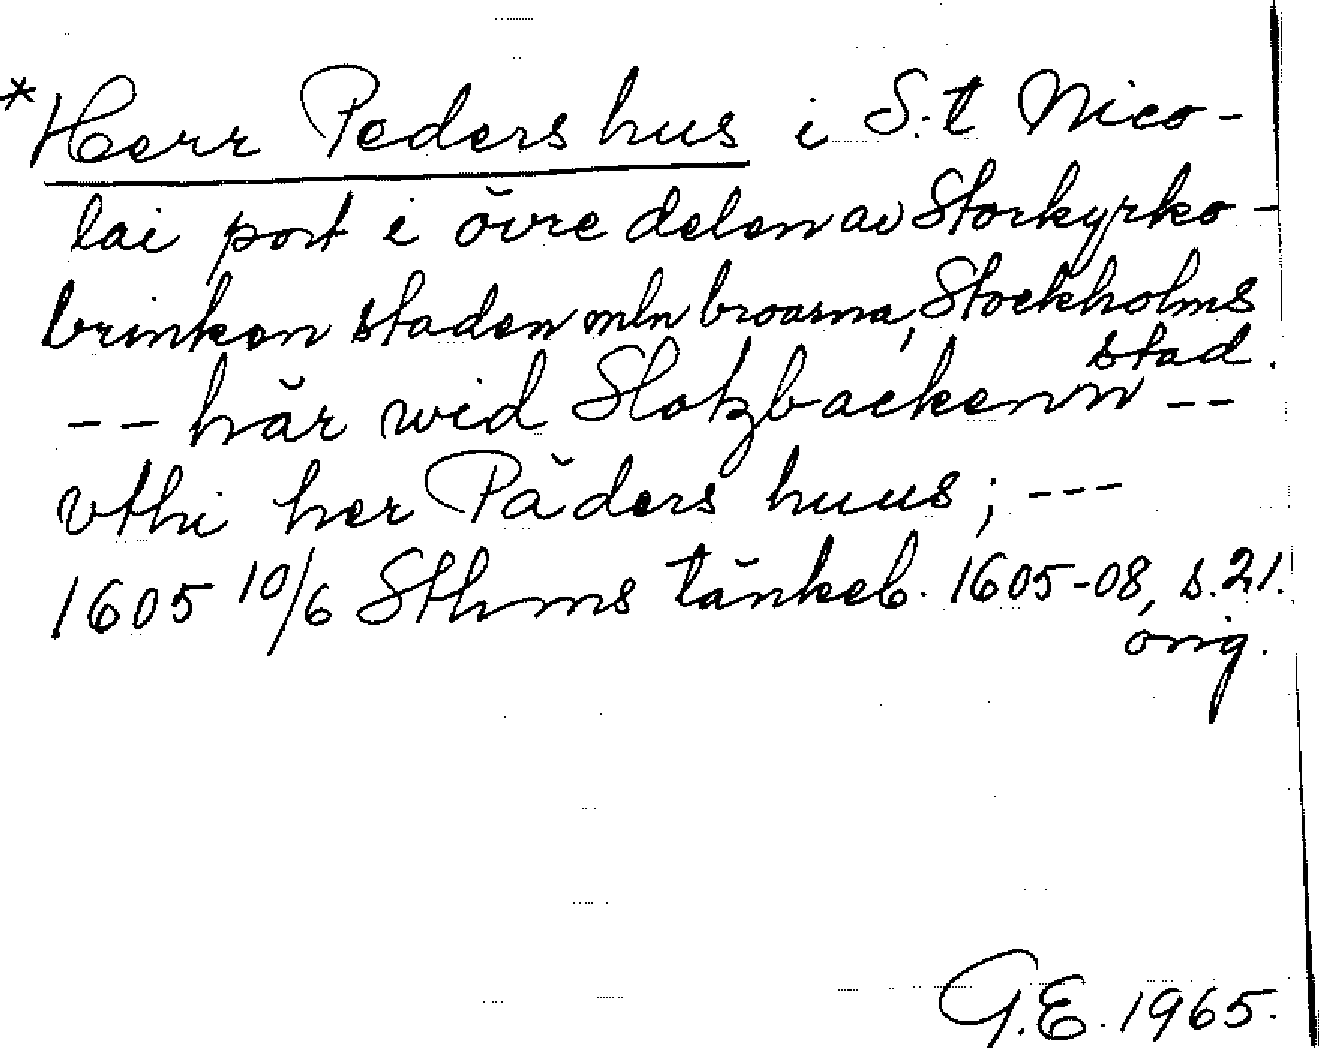 *Herr Peders hus i S:t Nico-
lai port i övre delen av Storkyrko-
brinken staden mln broarna, Stockholms
stad.
-- här wid Slotzbackenn --
vthi her Päders huus; ---
1605 10/6 Sthms tänkeb. 1605-08, s.21.
orig.
G.E. 1965.